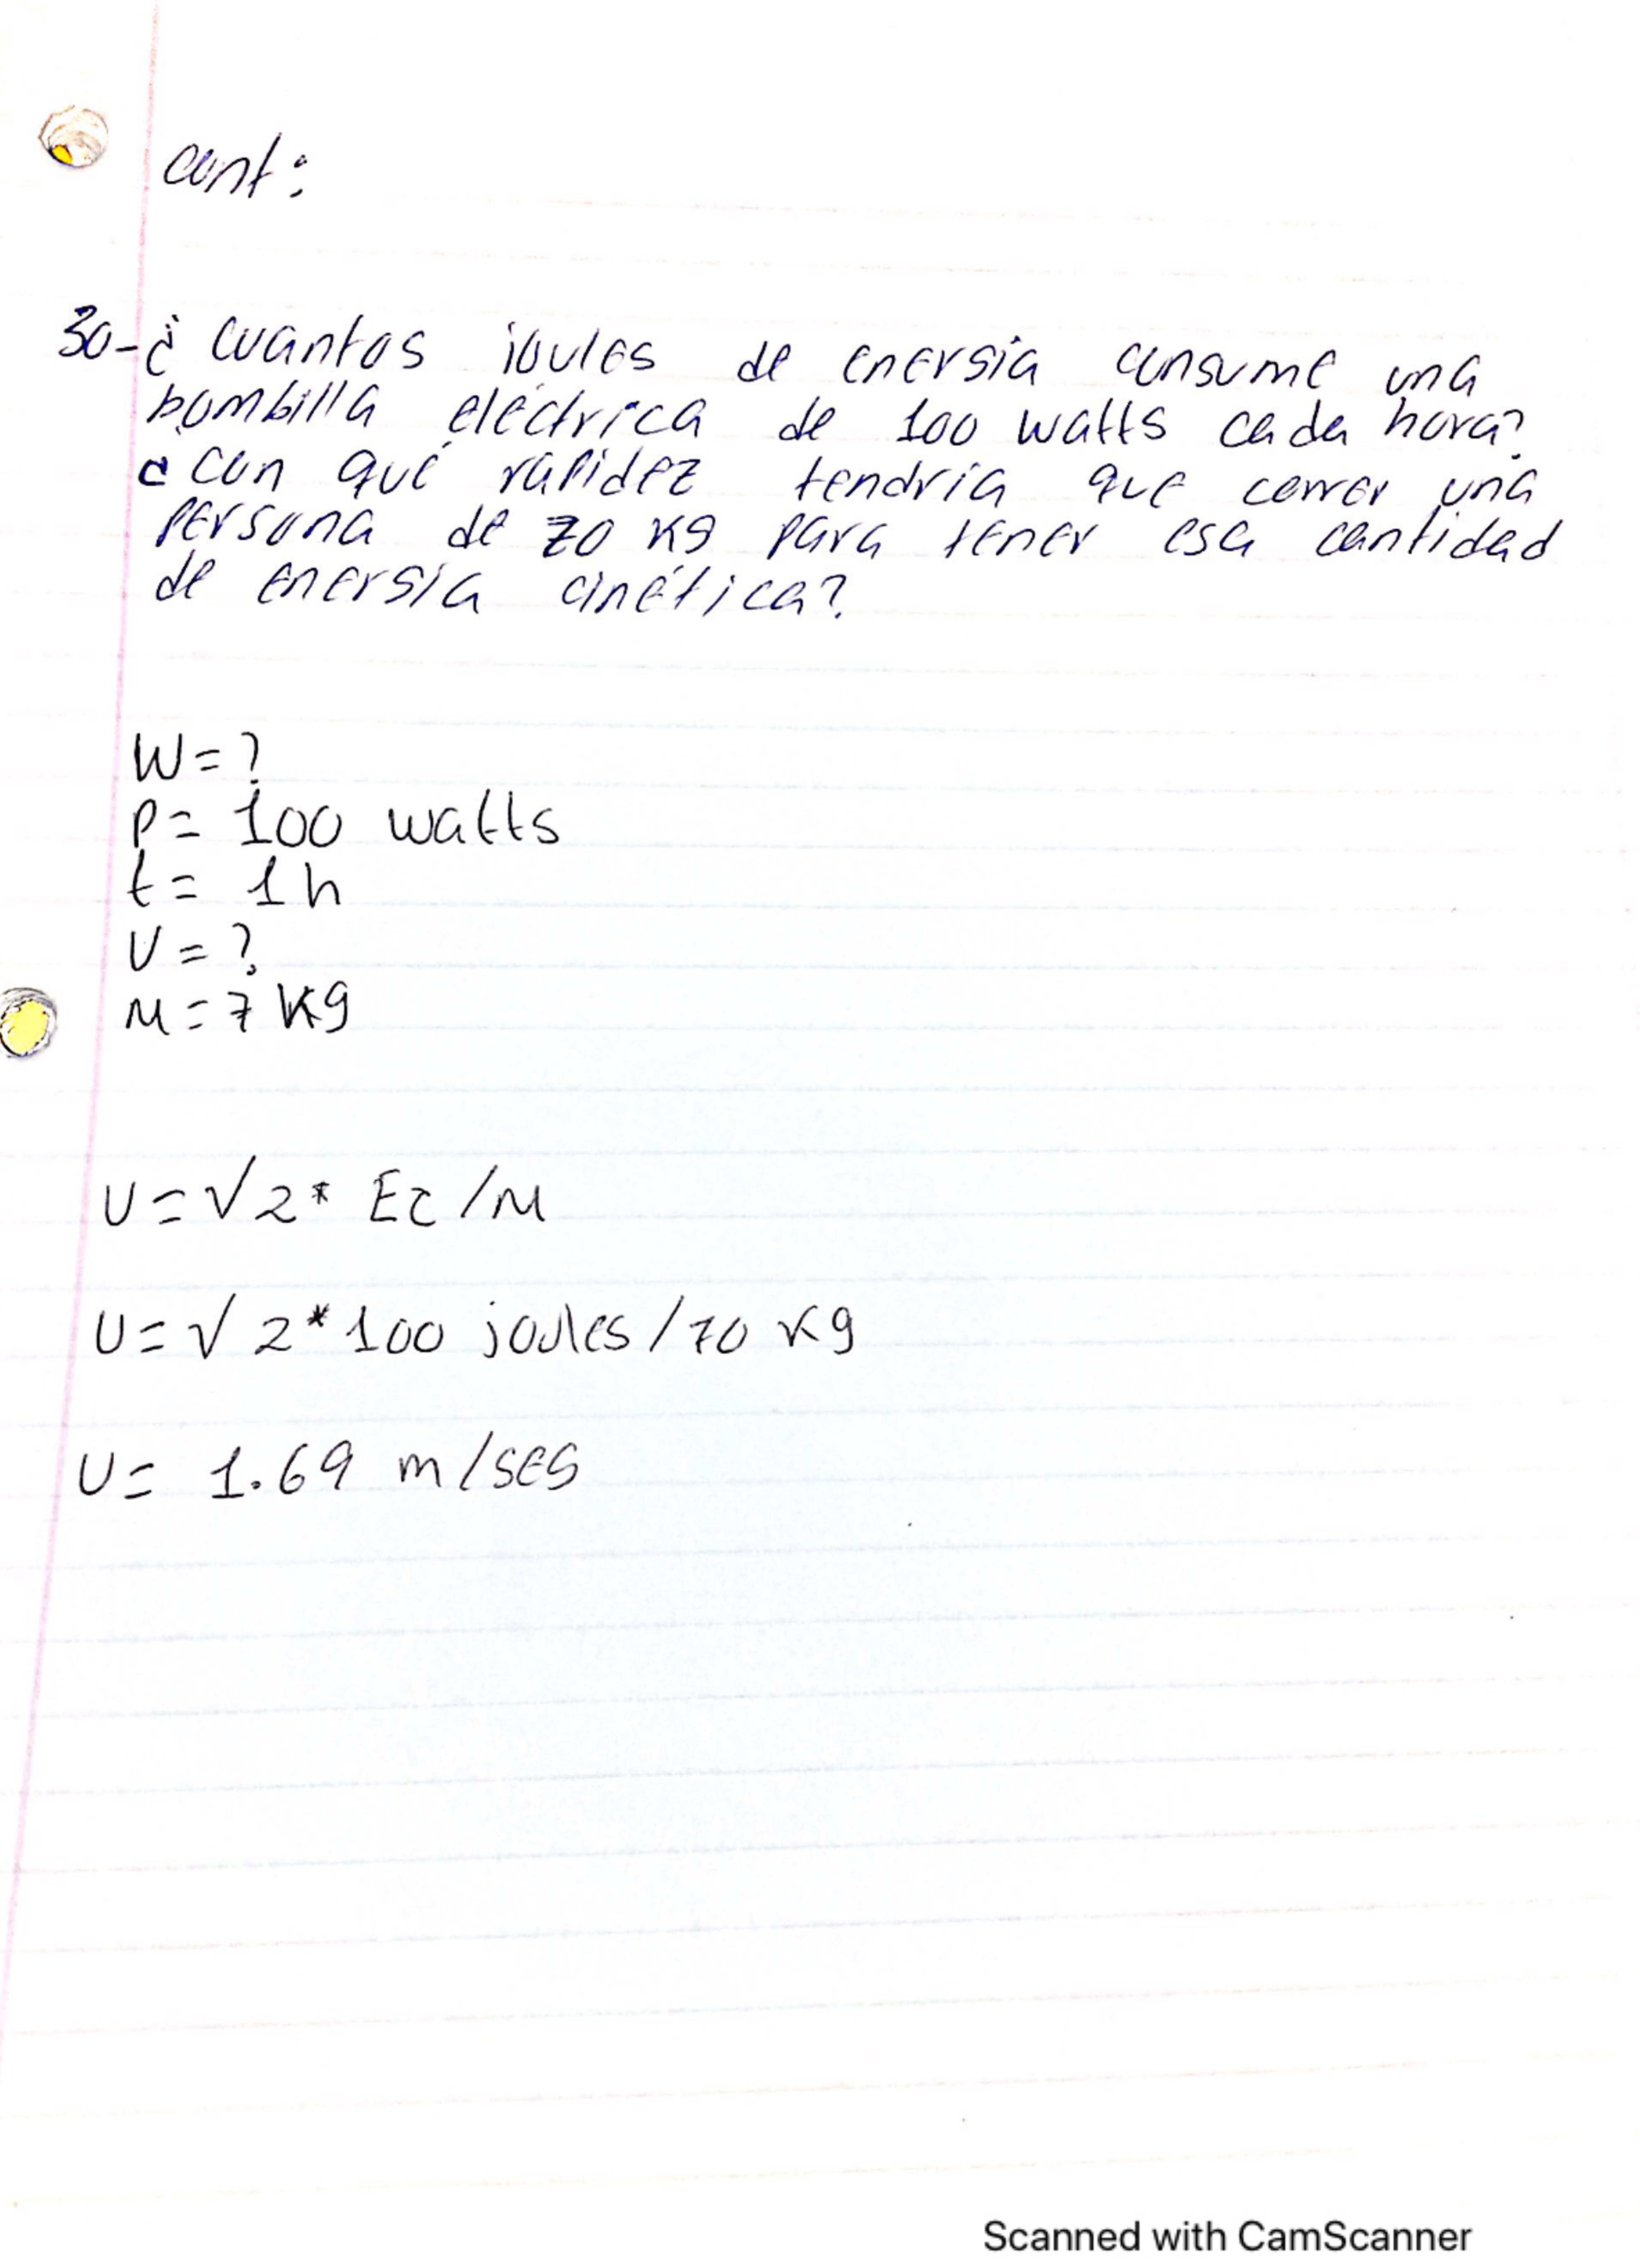 cont:
30-¿ Cuantos joules de energia consume una
bombilla eléctrica de 100 watts cada hora?
¿ Con qué rapidez tendría que correr una
persona de 70 kg para tener esa cantidad
de energía cinética?
W=?
P= 100 watts
t= 1h
V=?
M=7 kg
V=√2* Ec/M
V=√ 2*100 joules/70 kg
V= 1.69 m/seg
Scanned with CamScanner